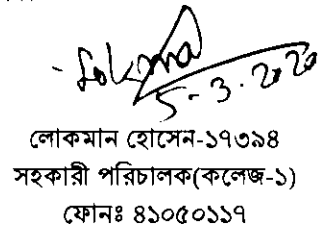 5-3-2020
লোকমান হোসেন-১৭৩৯৪
সহকারী পরিচালক(কলেজ-১)
ফোনঃ ৪১০৫০১১৭